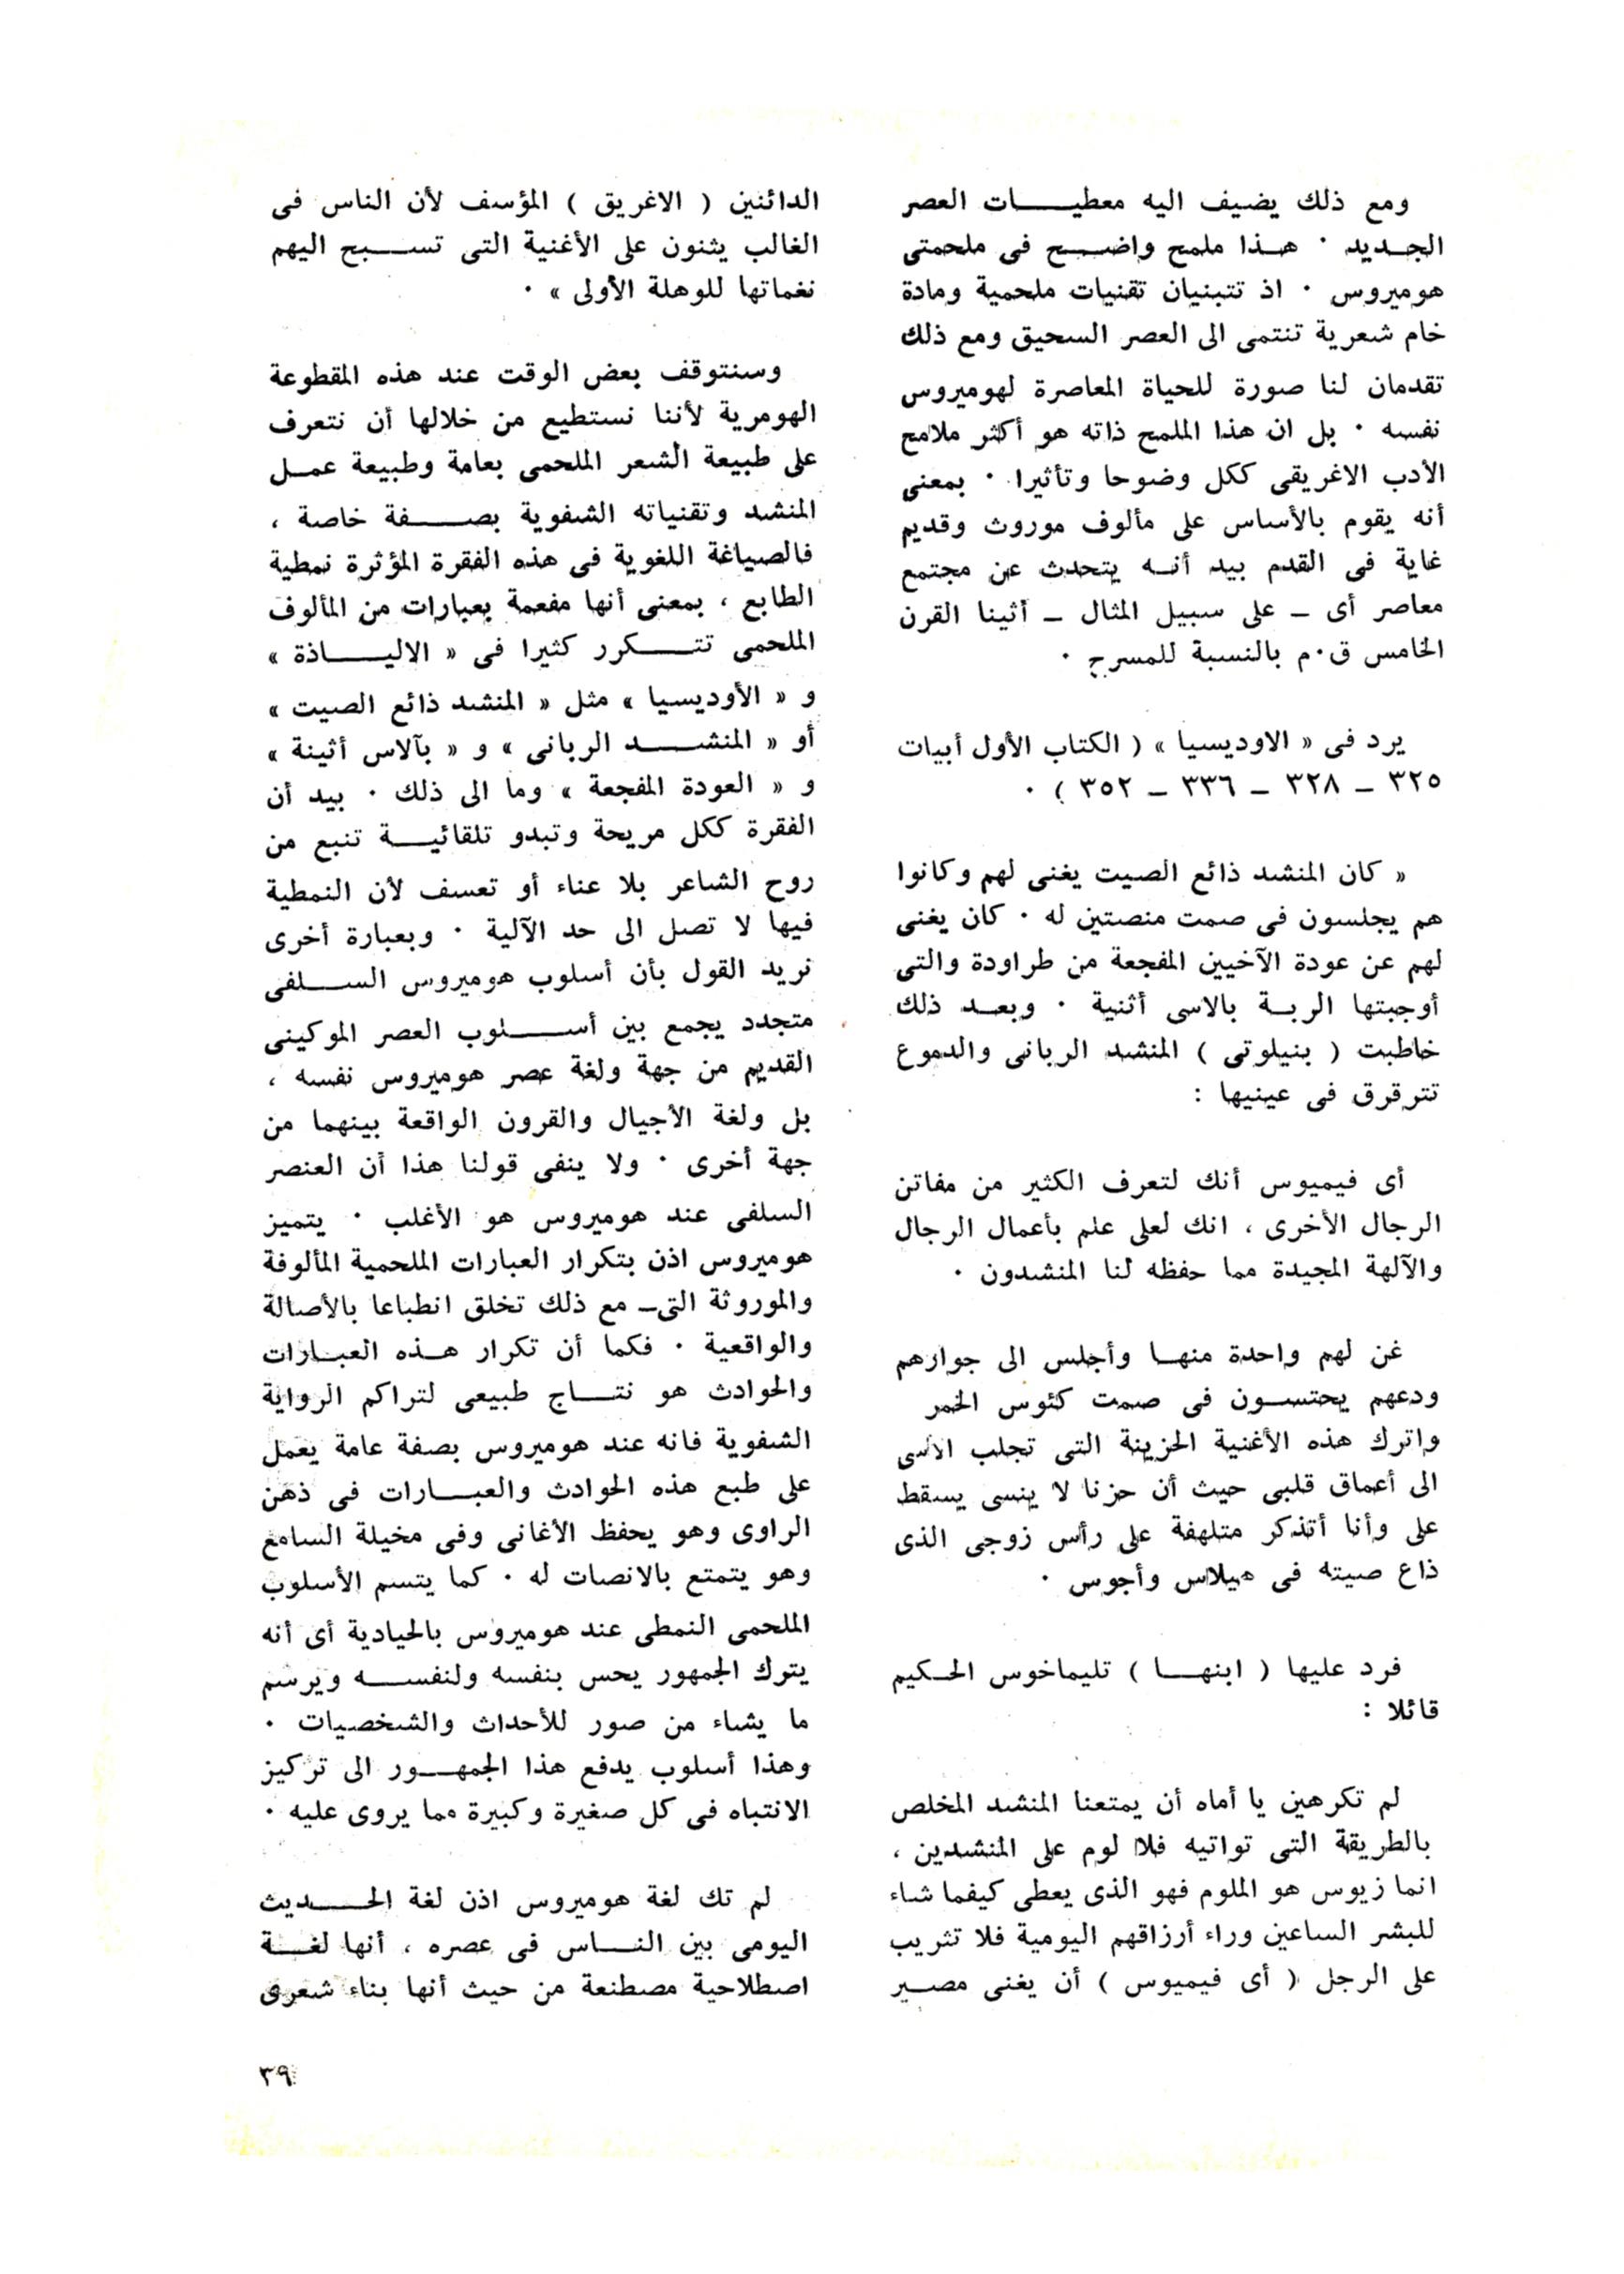 ومع ذلك يضيف اليه معطيات العصر
الجديد · هذا ملمح واضح فى ملحمتى
هوميروس · اذ تتبنيان تقنيات ملحمية ومادة
خام شعرية تنتمى الى العصر السحيق ومع ذلك
تقدمان لنا صورة للحياة المعاصرة لهوميروس
نفسه · بل ان هذا الملمح ذاته هو أكثر ملامح
الأدب الاغريقى ككل وضوحا وتأثيرا · بمعنى
أنه يقوم بالأساس على مألوف موروث وقديم
غاية فى القدم بيد أنه يتحدث عن مجتمع
معاصر أى ــ على سبيل المثال ــ أثينا القرن
الخامس ق·م بالنسبة للمسرح ·
يرد فى « الاوديسيا » ( الكتاب الأول أبيات
٣٢٥ ــ ٣٢٨ ــ ٣٣٦ ــ ٣٥٢ ) ·
« كان المنشد ذائع الصيت يغنى لهم وكانوا
هم يجلسون فى صمت منصتين له · كان يغنى
لهم عن عودة الآخيين المفجعة من طراودة والتى
أوجبتها الربة بالاسى أثنية · وبعد ذلك
خاطبت ( بنيلوتى ) المنشد الربانى والدموع
تترقرق فى عينيها :
أى فيميوس أنك لتعرف الكثير من مفاتن
الرجال الأخرى ، انك لعلى علم بأعمال الرجال
والآلهة المجيدة مما حفظه لنا المنشدون ·
غن لهم واحدة منها وأجلس الى جوارهم
ودعهم يحتسون فى صمت كئوس الخمر
واترك هذه الأغنية الحزينة التى تجلب الأسى
الى أعماق قلبى حيث أن حزنا لا ينسى يسقط
على وأنا أتذكر متلهفة على رأس زوجى الذى
ذاع صيته فى هيلاس وأجوس ·
فرد عليها ( ابنها ) تليماخوس الحكيم
قائلا :
لم تكرهين يا أماه أن يمتعنا المنشد المخلص
بالطريقة التى تواتيه فلا لوم على المنشدين ،
انما زيوس هو الملوم فهو الذى يعطى كيفما شاء
للبشر الساعين وراء أرزاقهم اليومية فلا تثريب
على الرجل ( أى فيميوس ) أن يغنى مصير
الدائنين ( الاغريق ) المؤسف لأن الناس فى
الغالب يثنون على الأغنية التى تسبح اليهم
نغماتها للوهلة الأولى » ·
وسنتوقف بعض الوقت عند هذه المقطوعة
الهومرية لأننا نستطيع من خلالها أن نتعرف
على طبيعة الشعر الملحمى بعامة وطبيعة عمل
المنشد وتقنياته الشفوية بصفة خاصة ،
فالصياغة اللغوية فى هذه الفقرة المؤثرة نمطية
الطابع ، بمعنى أنها مفعمة بعبارات من المألوف
الملحمى تتكرر كثيرا فى « الالياذة »
و « الأوديسيا » مثل « المنشد ذائع الصيت »
أو « المنشد الربانى » و « بآلاس أثينة »
و « العودة المفجعة » وما الى ذلك · بيد أن
الفقرة ككل مريحة وتبدو تلقائية تنبع من
روح الشاعر بلا عناء أو تعسف لأن النمطية
فيها لا تصل الى حد الآلية · وبعبارة أخرى
نريد القول بأن أسلوب هوميروس السلفى
متجدد يجمع بين أسلوب العصر الموكينى
القديم من جهة ولغة عصر هوميروس نفسه ،
بل ولغة الأجيال والقرون الواقعة بينهما من
جهة أخرى · ولا ينفى قولنا هذا أن العنصر
السلفى عند هوميروس هو الأغلب · يتميز
هوميروس اذن بتكرار العبارات الملحمية المألوفة
والموروثة التى ــ مع ذلك تخلق انطباعا بالأصالة
والواقعية · فكما أن تكرار هذه العبارات
والحوادث هو نتاج طبيعى لتراكم الرواية
الشفوية فانه عند هوميروس بصفة عامة يعمل
على طبع هذه الحوادث والعبارات فى ذهن
الراوى وهو يحفظ الأغانى وفى مخيلة السامع
وهو يتمتع بالانصات له · كما يتسم الأسلوب
الملحمى النمطى عند هوميروس بالحيادية أى أنه
يترك الجمهور يحس بنفسه ولنفسه ويرسم
ما يشاء من صور للأحداث والشخصيات ·
وهذا أسلوب يدفع هذا الجمهور الى تركيز
الانتباه فى كل صغيرة وكبيرة مما يروى عليه ·
لم تك لغة هوميروس اذن لغة الحديث
اليومى بين الناس فى عصره ، أنها لغة
اصطلاحية مصطنعة من حيث أنها بناء شعرى
٣٩